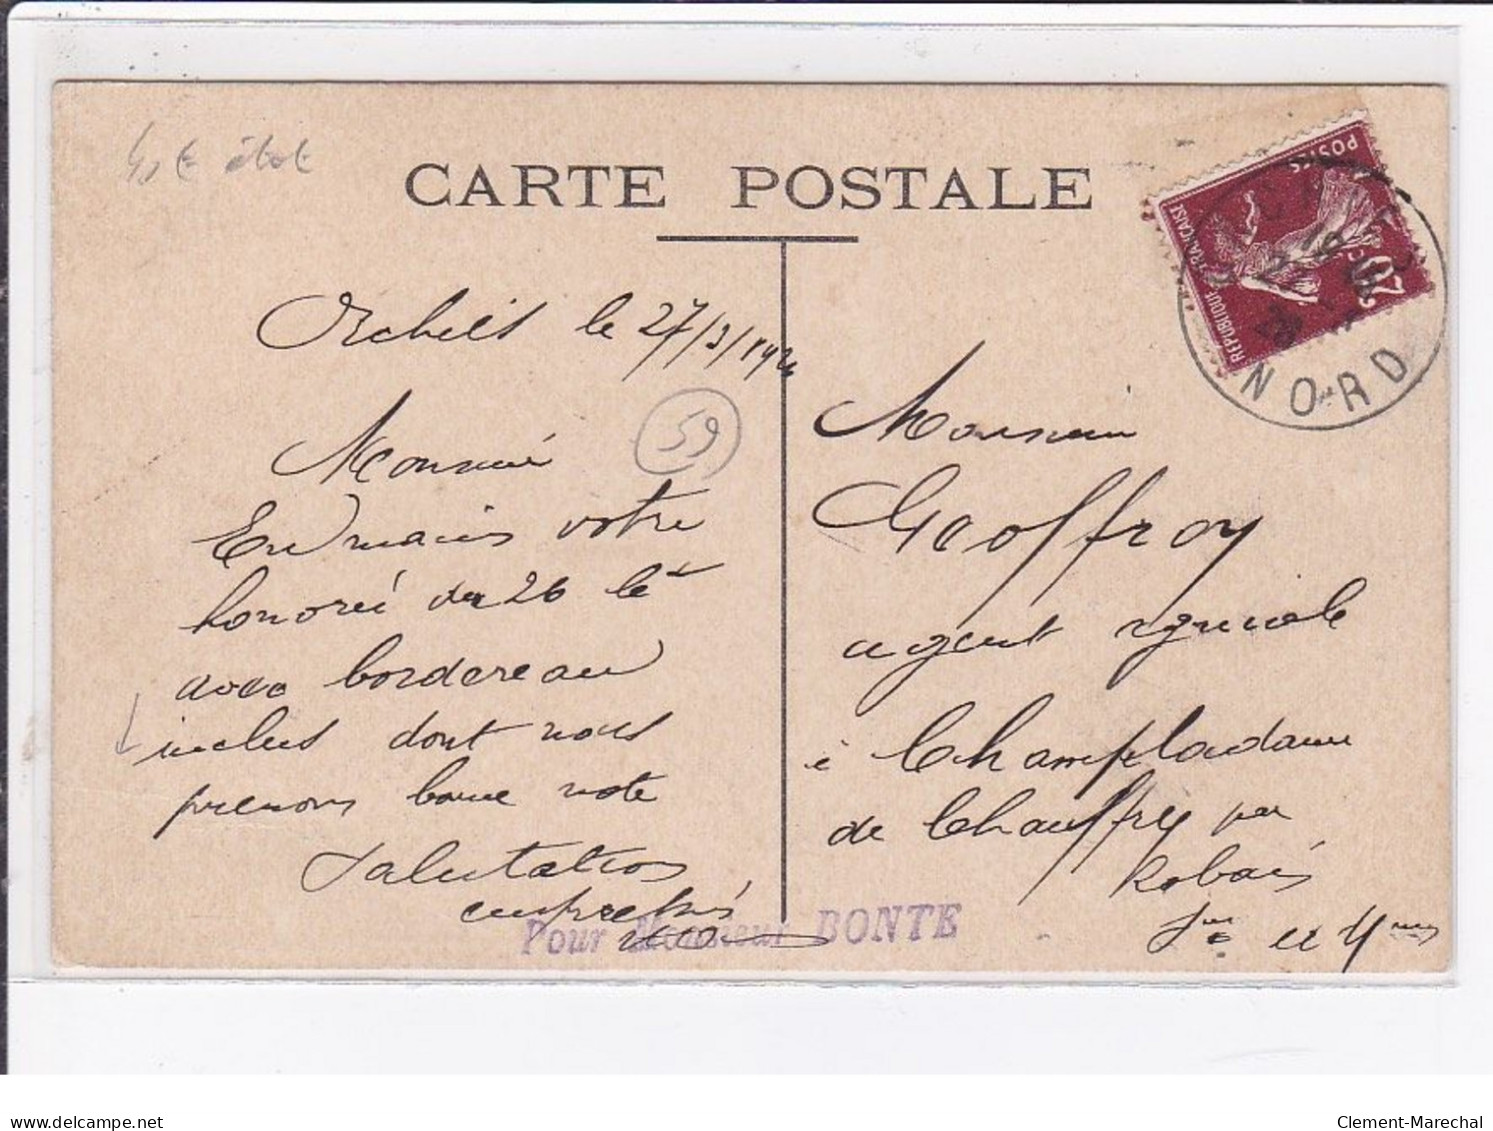 état
CARTE POSTALE
Orchies le 27/3/192
59
Monsieur
En mains votre
honoré du 26 ct
avec bordereau
inclus dont nous
prenons bonne note
Salutations
empressées
Pour Monsieur BONTE
POSTES
REPUBLIQUE FRANÇAISE
20c
NORD
Monsieur
Geoffroy
agent agricole
à Champladame
de Chauffry par
Rebais
Sne et Mne
www.delcampe.net
Clement-Marechal